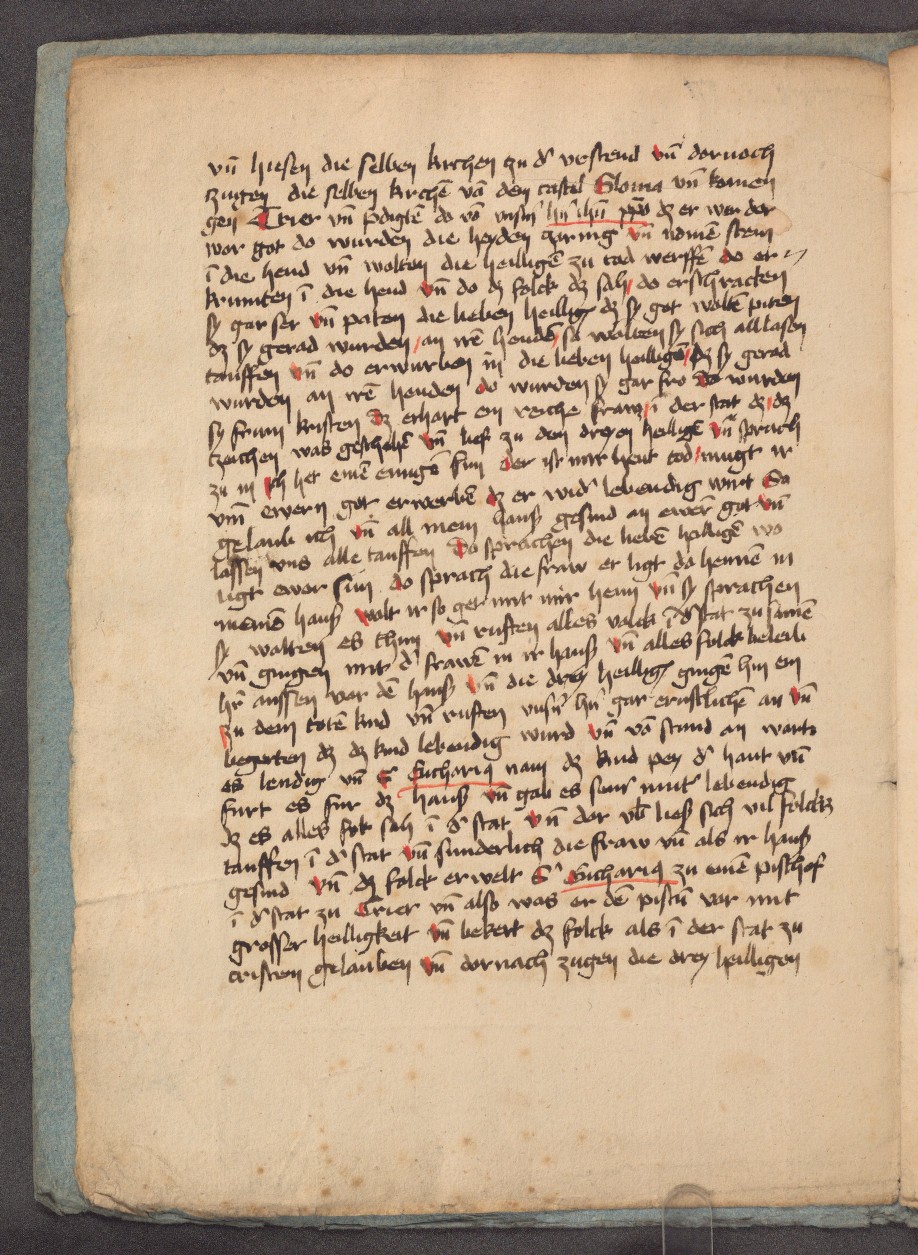 vn̄ hiesen die selben kirchen zu d' vrstend vn̄ dornoch
zugen die selben kirchē vō den castel Gloma vn̄ komen
gen Trier vn̄ p̄digtē do vō vnsn̄ hn̄ ihū xp̄o dz er wer der
wor got do wurden die heyden zornig vn̄ nomē stein
ī die hend vn̄ wolten die heilligē zu tod werffē do er
krumten ī die hend vn̄ do dz folck dz sah do erschracken
sy gar ser vn̄ paten die lieben heilliḡ dz sy got woltē piten
dz sy gerad wurden an irē hendē so wolten sy sich all lasen
tauffen vn̄ do erwurben in die lieben heilligē dz sy gerad
wurden an irē henden do wurden sy gar fro do wurden
sy frum kristen dz erhart ein reiche fraw ī der stat dz dz
tzeichen was geschehē vn̄ lieff zu den dreyen heiligē vn̄ sprach
zu in ich het einē einigē sun der ist mir heut tod mugt ir
vm̄ ewern got erwerbē dz er wid' lebendig wirt So
gelaub ich vn̄ all mein hauß gesind an ewern got vn̄
lassen vns alle tauffen Do sprachen die liebē heilligē wo
ligt ewer sun do sprach die fraw er ligt do heimē in
meinē hauß wolt ir so get mit mir heim vn̄ sy sprachen
sy wolten es thun vn̄ rufften alles volck ī d' stat zu samē
vn̄ gingen mit d' frawē in ir hauß vn̄ alles folck beleib
hr̄ aussen vor dē hauß vn̄ die drey heilliḡ gingē hin ein
zu dem totē kind vn̄ ruften vnsn̄ hn̄ gar ernstlichē an vn̄
begerten dz dz kind lebendig wurd vn̄ vō stund an wartz
es lendig vn̄ S' Euchariꝰ nam dz kind pey d' hant vn̄
furt es fur dz hauß vn̄ gab es sein' mut' lebendig
dz es alles folk sah ī d' stat vn̄ dor vb̄ ließ sich vil folcks
tauffen ī d' stat vn̄ sunderlich die fraw vn̄ als ir hauß
gesind vn̄ dz folck erwelt S' Euchariꝰ zu einē pischof
ī d' stat zu Trier vn̄ also was er dē pistū vor mit
grosser heilligkeit vn̄ bekert dz folck als ī der stat zu
cristem gelauben vn̄ dornach zugen die drey heilligen